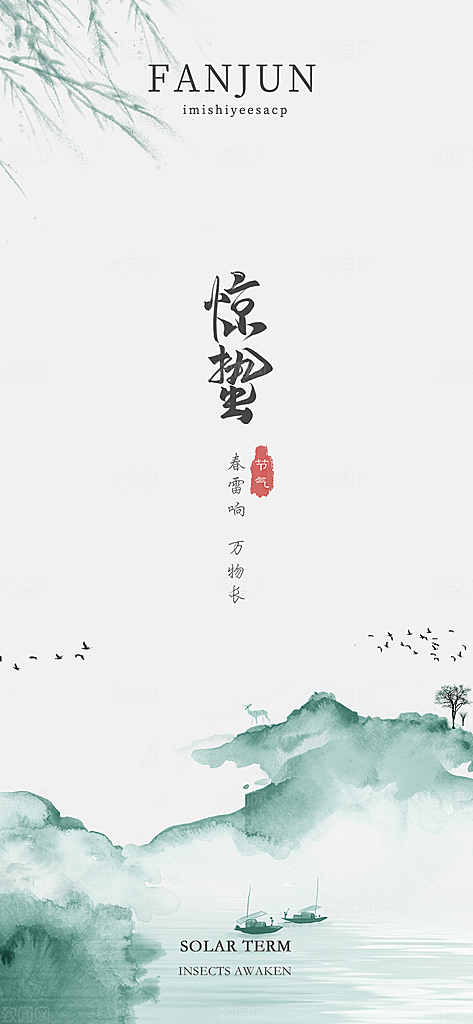 FANJUN
imishiyeesacp
惊蛰
节气
春雷响 万物长
SOLAR TERM
INSECTS AWAKEN